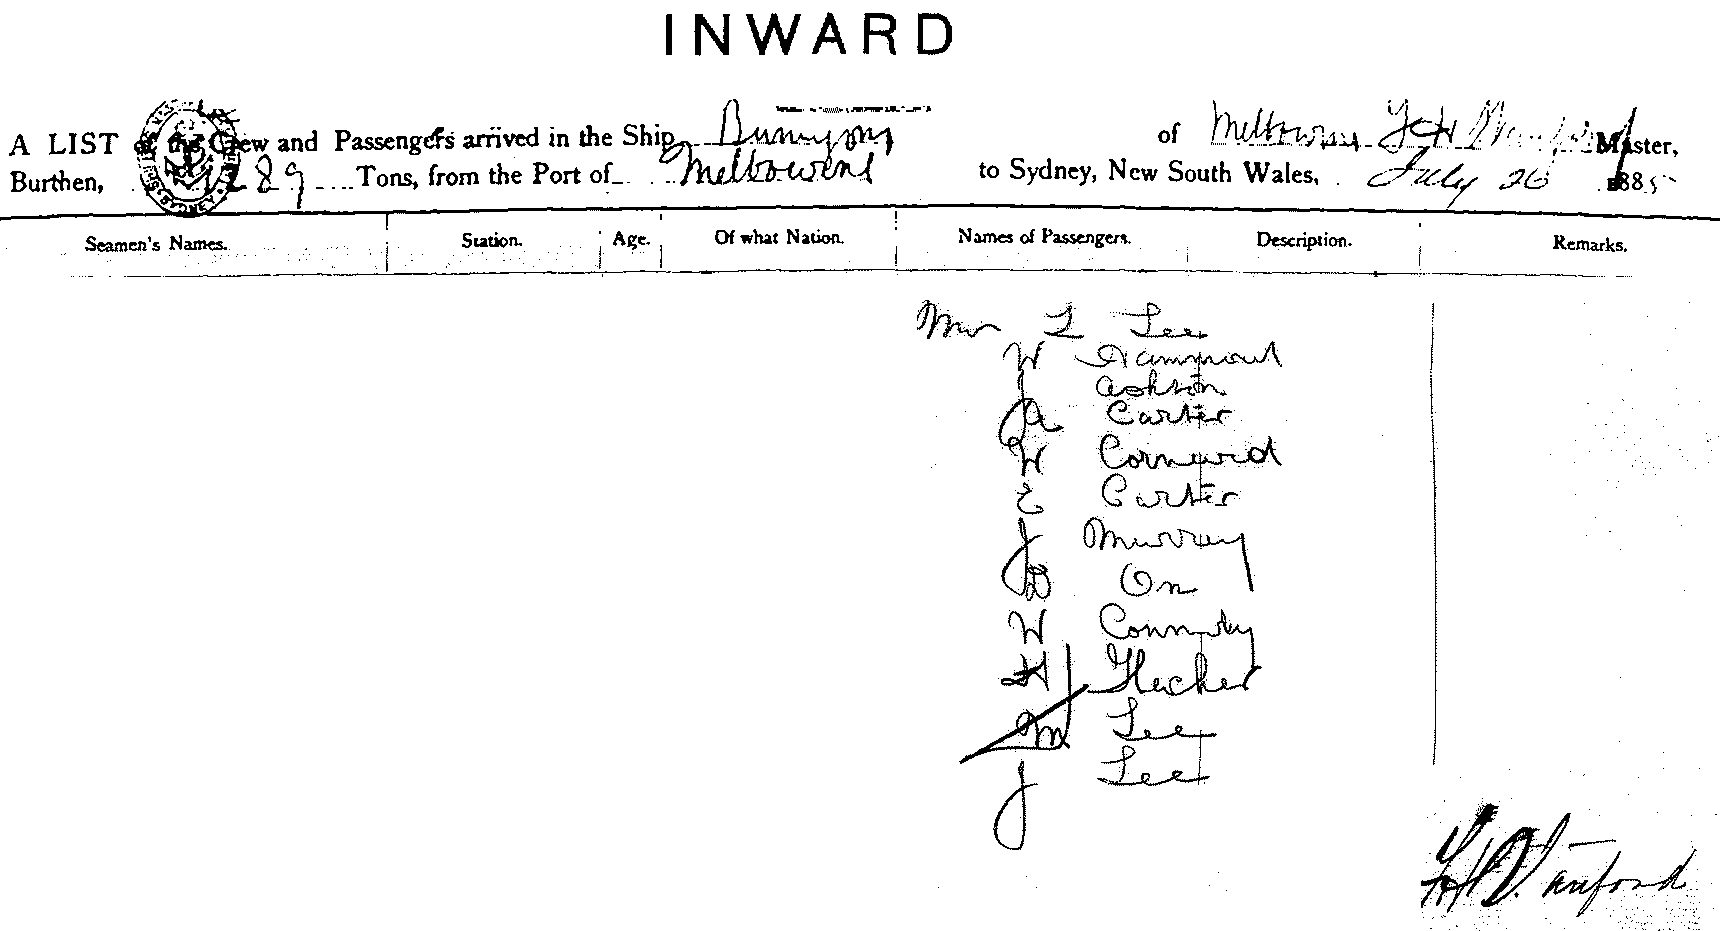 INWARD
A LIST of the Crew and Passengers arrived in the Ship Bunyong of Melbourne Master,
Burthen, Tons, from the Port of Melbourne to Sydney, New South Wales, July 26 1885
Seamen's Names. Station. Age. Of what Nation. Names of Passengers. Description. Remarks.
Mr L Lee
W Hammond
J Ashton
A Carter
W
E Carter
J Murray
D
W
H
M Lee
J Lee